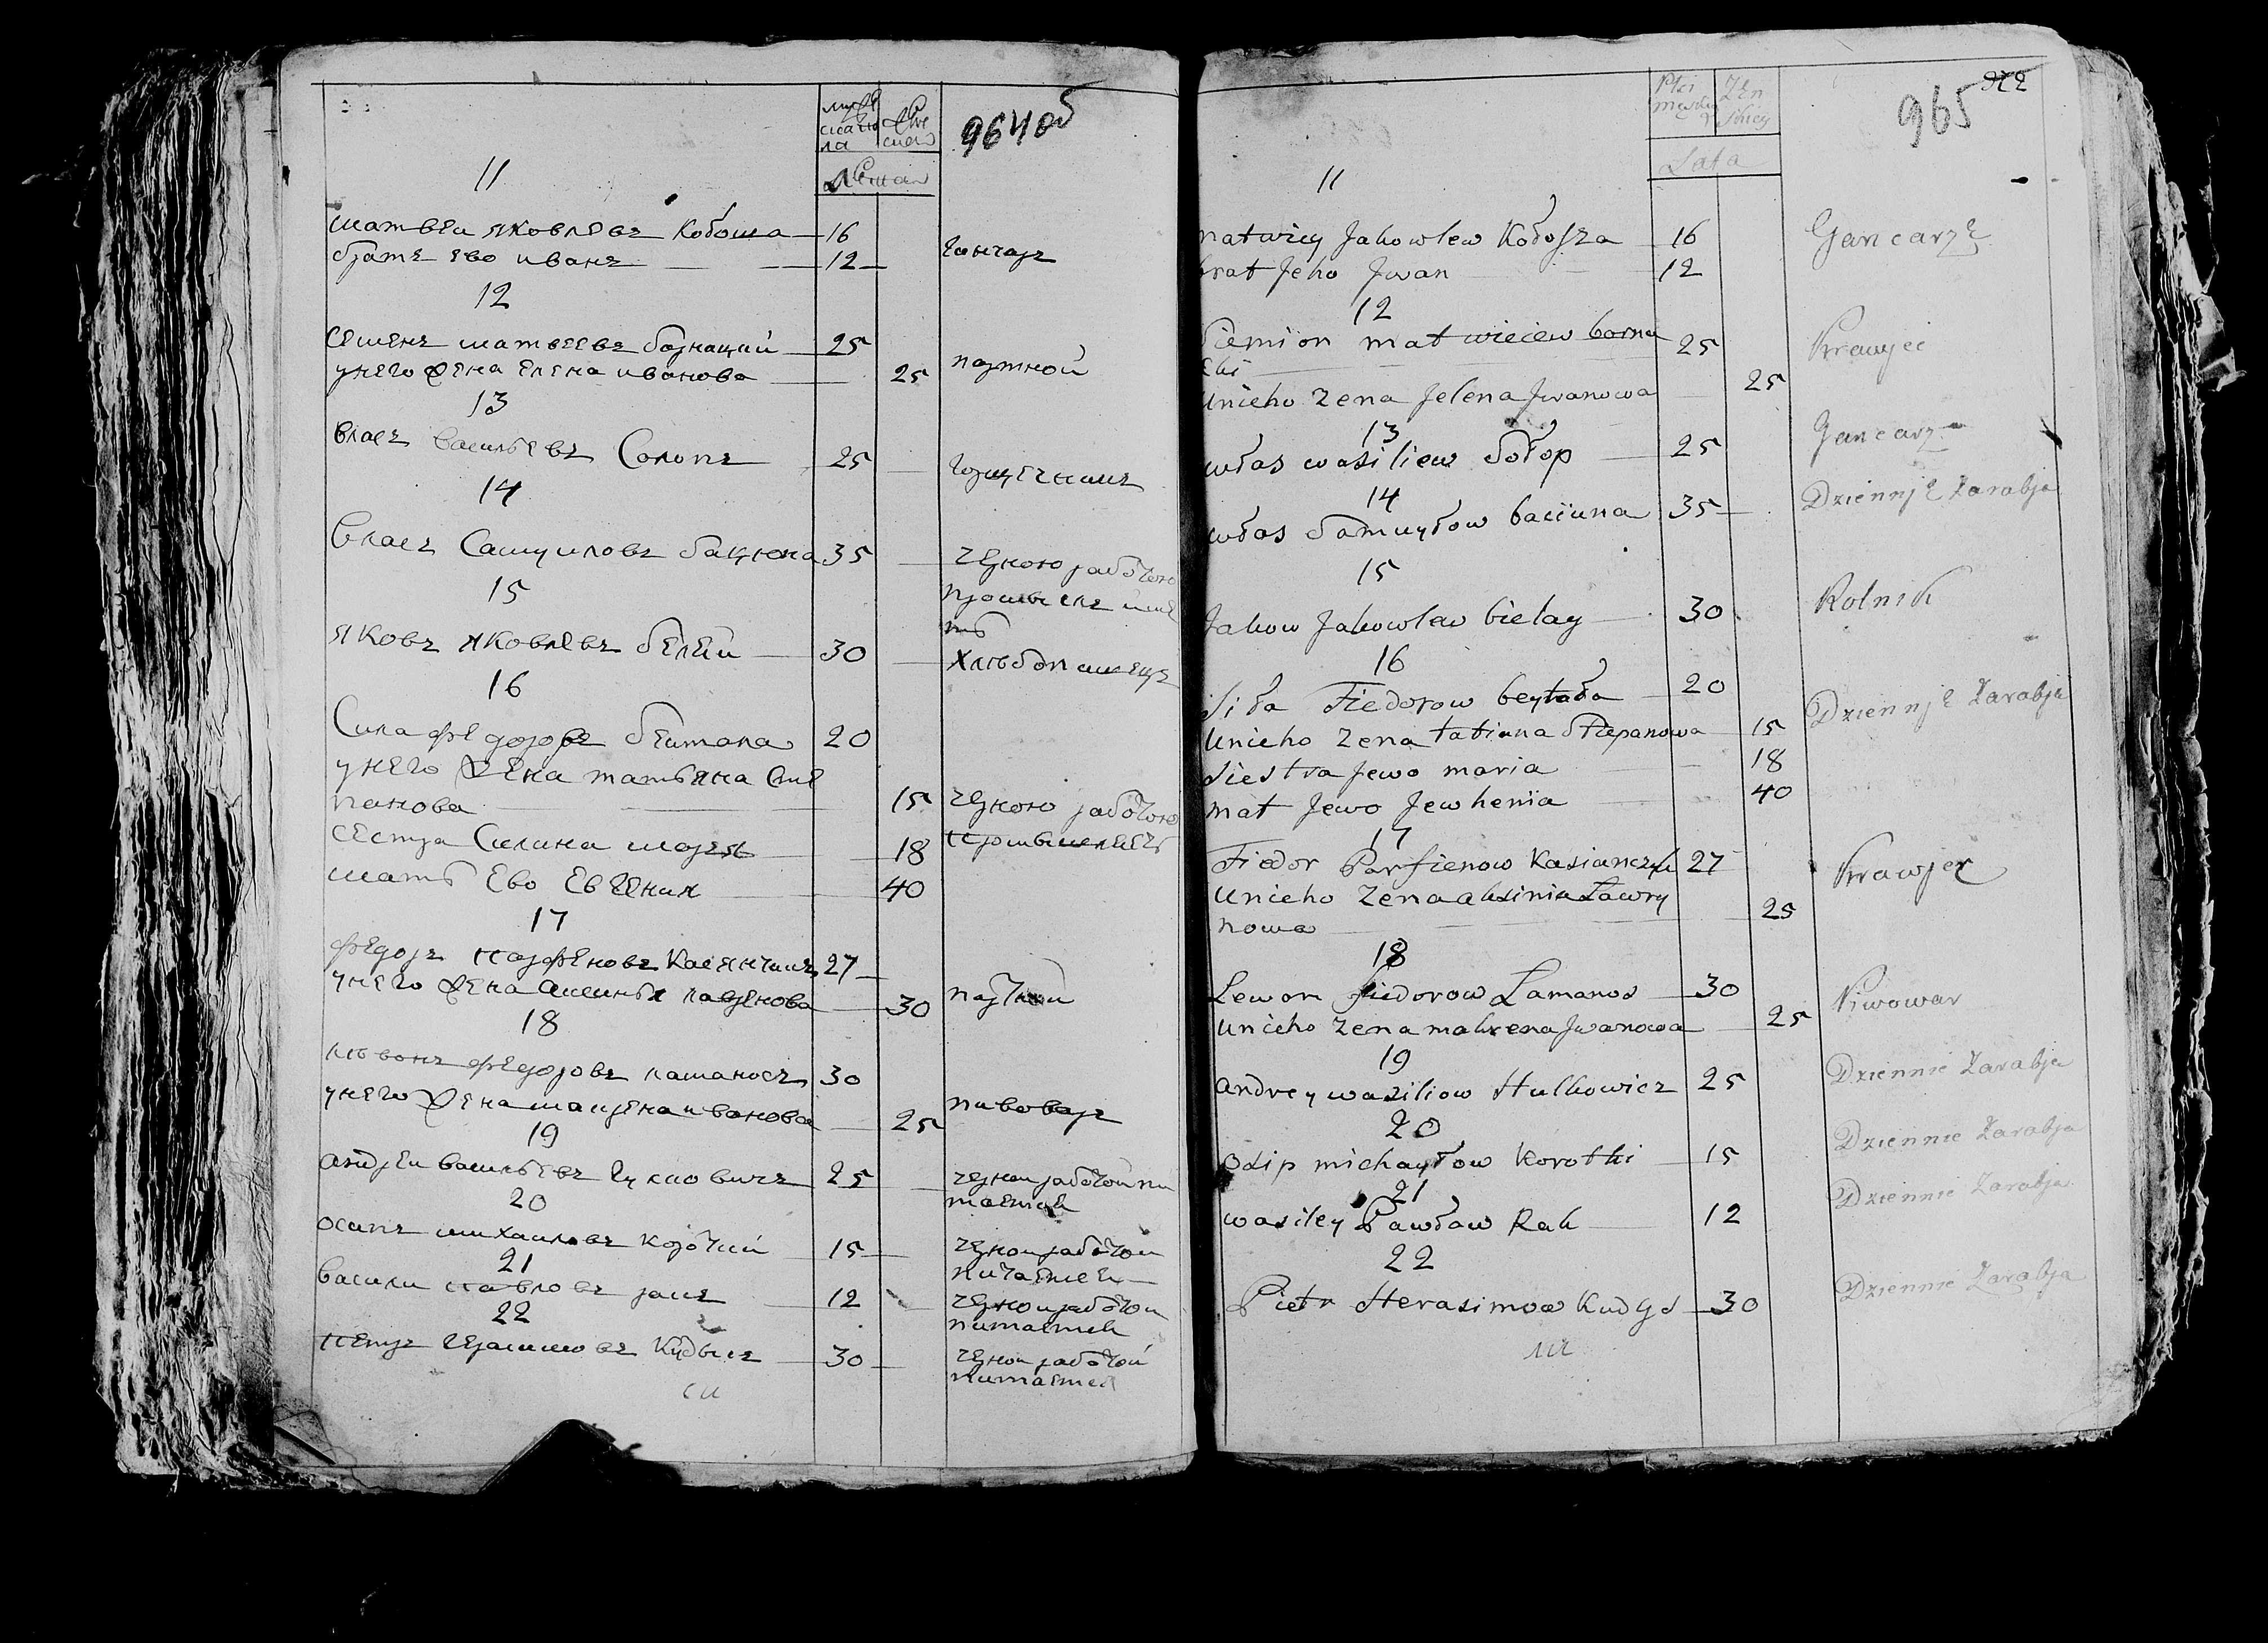 964об
11
матвеи яковлевъ кобоша 16
братъ ево иванъ 12
гончаръ
12
семенъ матвеевъ борнацкий 25
унего жена елена иванова 25
портной
13
власъ васильевъ Солопъ 25
горщечникъ
14
власъ Самуиловъ бацюна 35
черною работою
промыслъ имѣ
15
яковъ яковлевъ белеи 30
хлѣбопашецъ
16
Сила федоровъ беитала 20
унего жена татьяна Сте
панова 15
черною работою
сестра Силина 18
мать ево евгения 40
17
федоръ парфеновъ касянчикъ 27
унего жена аксинья лавренова 30
портной
18
лѣвонъ федоровъ ламаносъ 30
унего жена макрена иванова 25
пивоваръ
19
андреи васильевъ гулковичъ 25
черноиработои пи
таетца
20
осипъ михаиловъ короткий 15
черноиработои
питаетца
21
васили павловъ ракъ 12
черноиработои
питаетца
22
петръ герасимовъ кудысъ 30
черноиработои
питаетца
Płci męzkiey Zen skiey
965
Lata
11
matwiey Jakowlew Kobosza 16
brat Jeho Jwan 12
Gancarzę
12
Siemion matwieiew borna 25
cki
Unieho zena Jelena Jwanowa 25
Krawjec
13
włas wasiliew Sołop 25
Gancarz
14
włas Samuyłow baciuna 35
Dziennję Zarabja
15
Jakow Jakowlew bielay 30
Rolnik
16
Siła Fiedorow beytała 20
Unieho zena tatiana Stiepanowa 15
Siestra Jewo maria 18
mat Jewo Jewhenia 40
Dziennję Zarabja
17
Fiedor Parfienow Kasianczyk 27
Unieho zena aksinia Ławry
nowa 25
Krawjec
18
Lewon Fiedorow Lamanos 30
Unieho zena makrena Jwanowa 25
Piwowar
19
andrey wasiliow Hulkowicz 25
Dziennie Zarabja
20
Osip michayłow Korotki 15
Dziennie Zarabja
21
wasiley Pawłow Rak 12
Dziennie Zarabja
22
Pietr Herasimow Kudys 30
Dziennie Zarabja